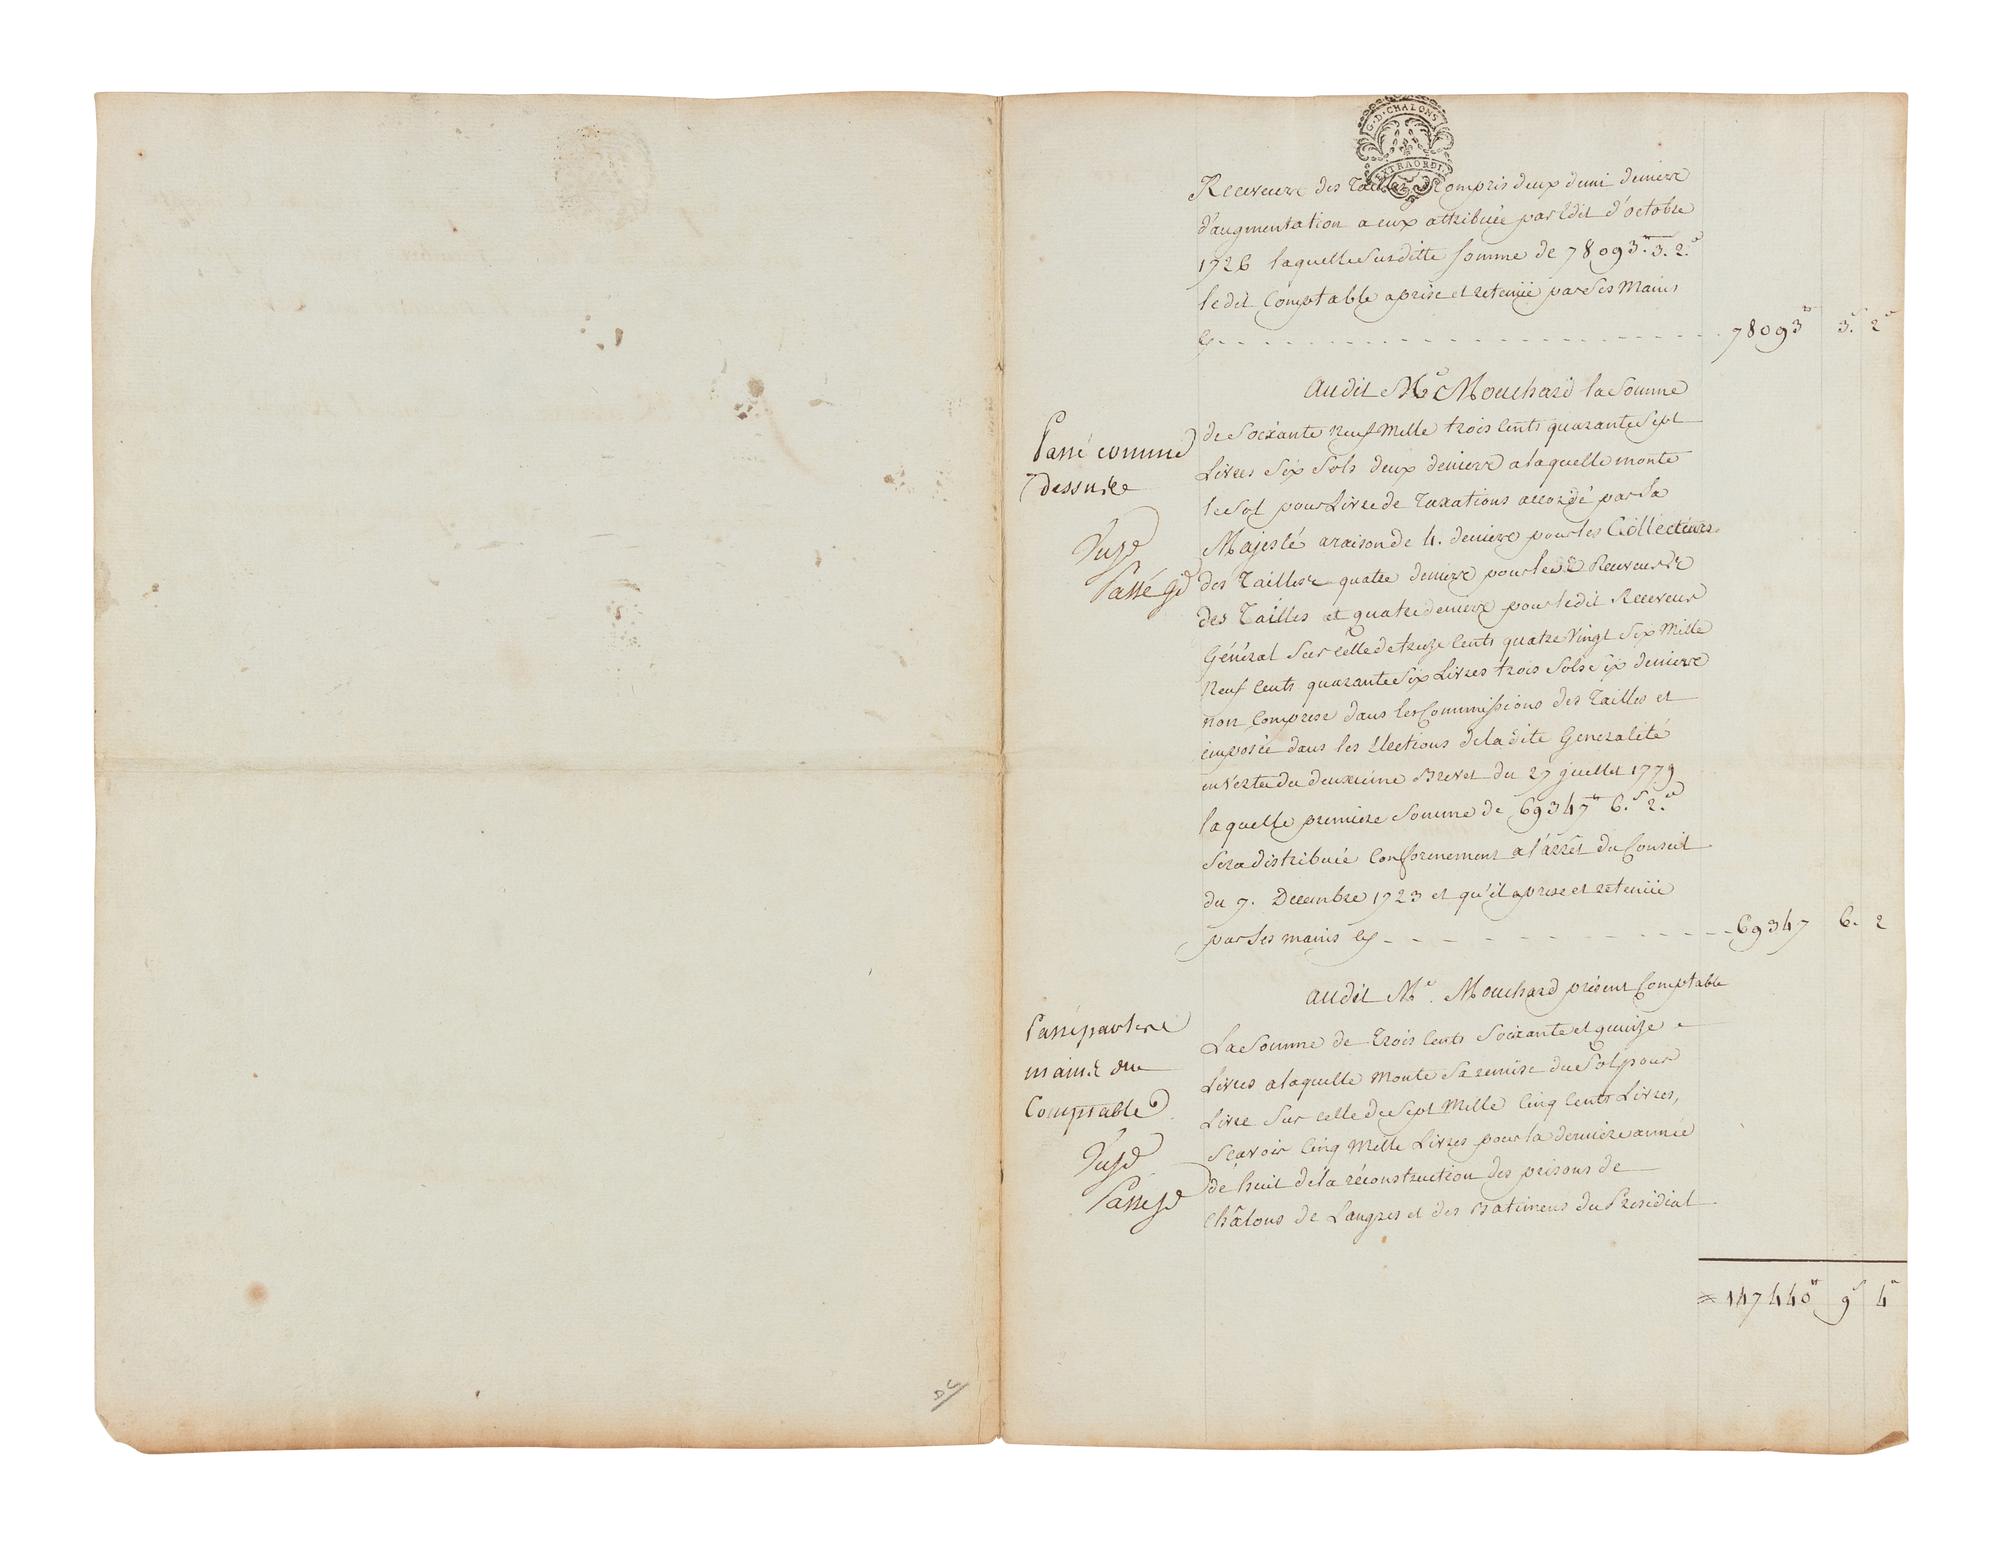 G. D. CHALONS
EXTRAORD.
Receveurs des Tailles Compris deux demi deniers
d'augmentation a eux attribuée par Edit d'octobre
1726 laquelle Susditte Somme de 78093.tt 3. 2.d
ledit Comptable a prise et reteniie par Ses Mains
cy 78093tt 3.s 2d
Audit Me. Mouchard la Somme
Passé comme
dessus
Vu
Passé
de Soixante Neuf Mille trois Cents quarante Sept
Livres Six Sols deux deniers a laquelle monte
le Sol pour Livre de Taxations accordé par Sa
Majesté a raison de 4. deniers pour les Collecteurs
des Tailles quatre deniers pour les Receveurs
des Tailles et quatre deniers pour ledit Receveur
Général Sur celle de treize Cents quatre Vingt Six Mille
Neuf Cents quarante Six Livres trois Sols Six deniers
non Comprise dans les Commissions des Tailles et
imposée dans les Elections de la dite Generalité
en Vertu du deuxieme Brevet du 27 juillet 1779
laquelle premiere Somme de 69347tt 6.s 2.d
Sera distribuée Conformement a l'arrest du Conseil
du 7. Decembre 1723 et qu'il a prise et reteniie
par Ses mains cy 69347 6. 2
Audit Me. Mouchard présent Comptable
Passé par les
mains du
Comptable
Vu
Passé
La Somme de Trois Cents Soixante et quinze
Livres a laquelle Monte Sa remise du Sol pour
Livre Sur celle de Sept Mille Cinq Cents Livres,
Scavoir Cinq Mille Livres pour la derniere année
de huit de la réconstruction des prisons de
Châlons de Langres et des Batimens du Presidial
147440tt 9s 4d